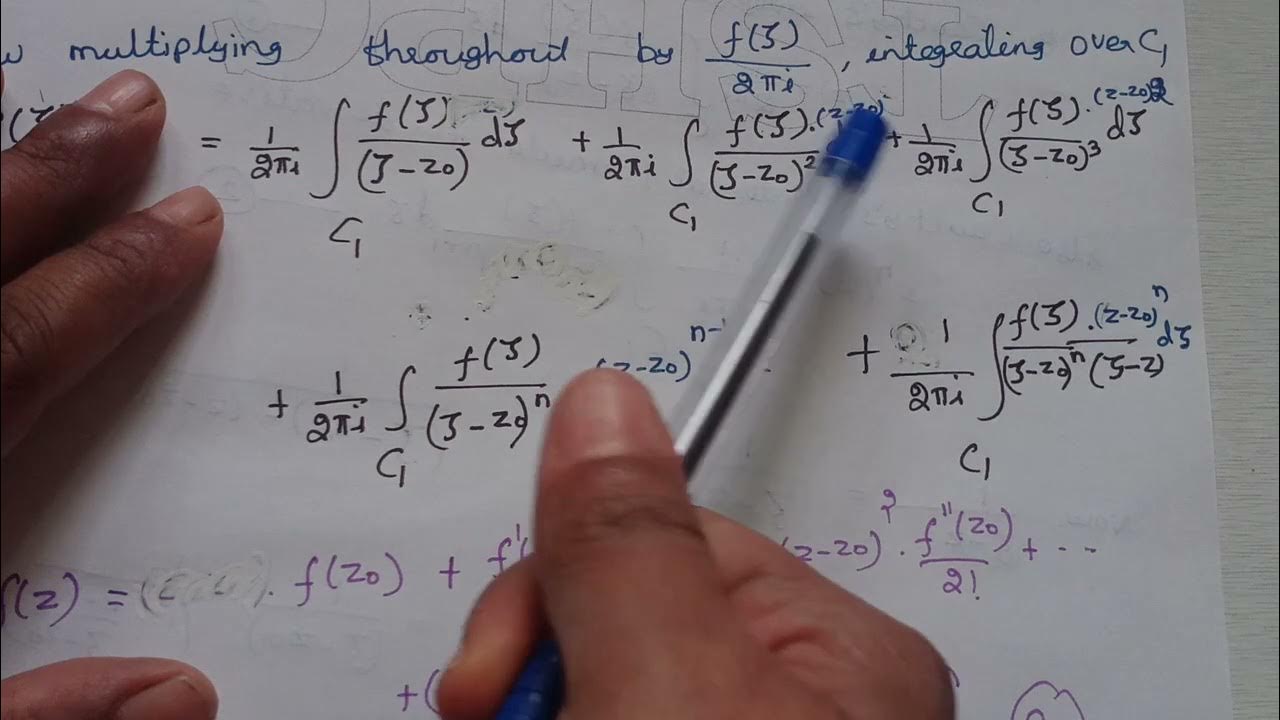 multiplying throughout by f(ζ)/2πi, integrating over C₁
= 1/2πi ∫_C₁ f(ζ)/(ζ-z0) dζ + 1/2πi ∫_C₁ f(ζ)·(z-z0)/(ζ-z0)² + 1/2πi ∫_C₁ f(ζ)·(z-z0)²/(ζ-z0)³ dζ
+ 1/2πi ∫_C₁ f(ζ)/(ζ-z0)ⁿ (z-z0)ⁿ⁻¹ + 1/2πi ∫_C₁ f(ζ)·(z-z0)ⁿ/(ζ-z0)ⁿ(ζ-z) dζ
f(z) = f(z0) + f'( (z-z0)²·f''(z0)/2! + ...
+(